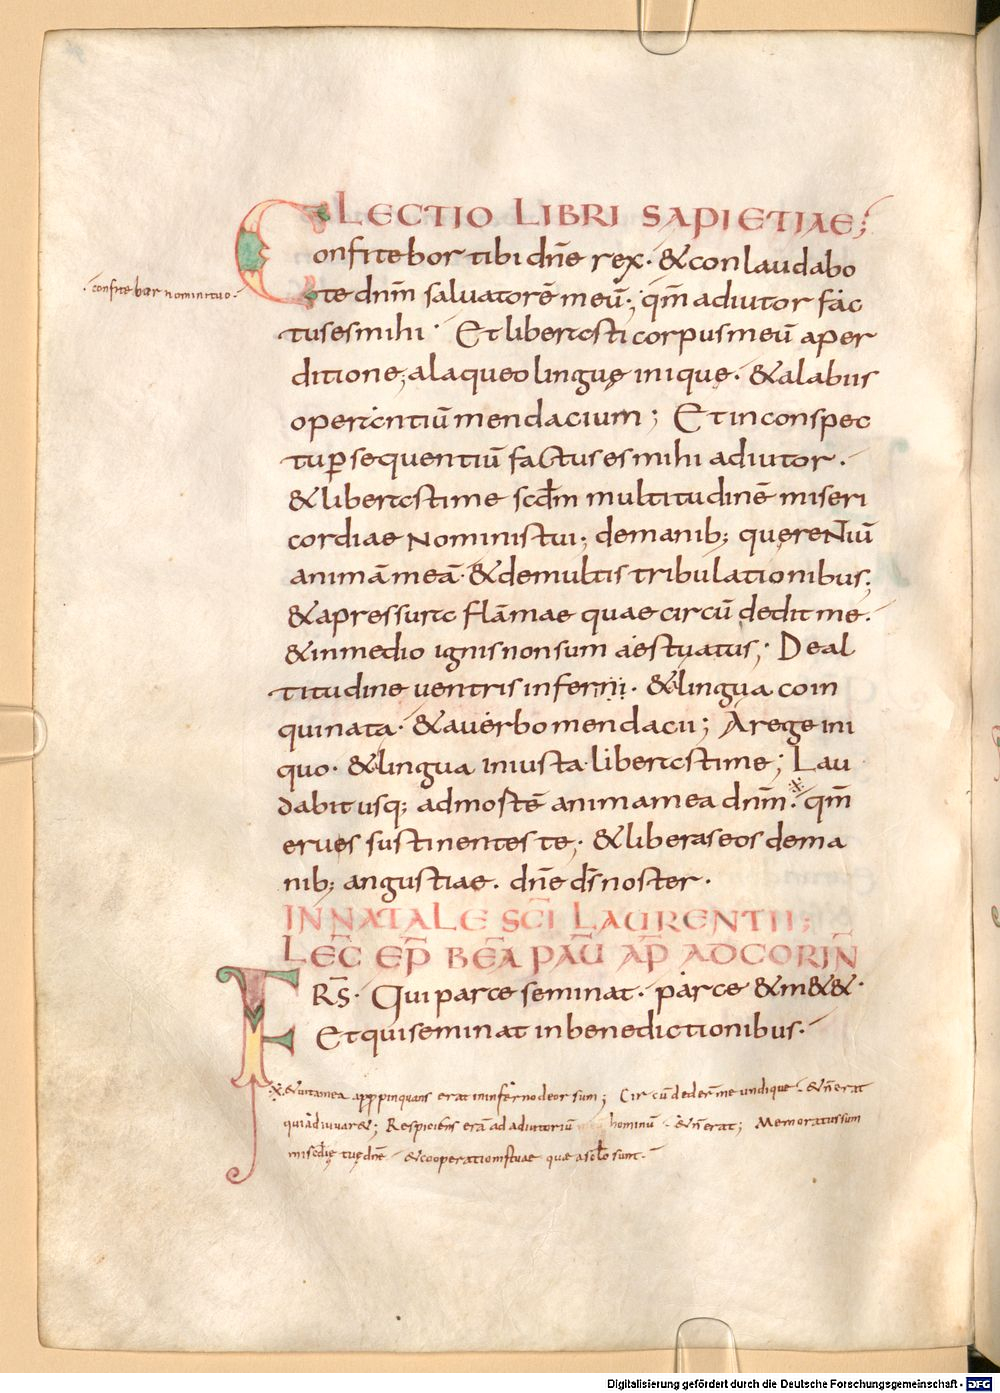 LECTIO LIBRI SAPIETIAE;
Confitebor tibi dn̄e rex· & conlaudabo
te dn̄m saluatorē meū; qm̄ adiutor fac
tus es mihi· Et liberasti corpus meū a per
ditione; a laqueo linguę iniquę· & a labiis
operantiū mendacium; Et in conspec
tu ꝑsequentiū factus es mihi adiutor·
& liberasti me scd̄m multitudinē miseri
cordiae nominis tui; de manib; querentiū
animā meā· & de multis tribulationibus;
& a pressura flāmae quae circū dedit me·
& in medio ignis non sum aestuatus; De al
titudine uentris inferni· & lingua coin
quinata· & a uerbo mendacii; A rege ini
quo· & lingua iniusta liberasti me; Lau
dabit usq; ad mortē anima mea dn̄m· qm̄
erues sustinentes te; & liberas eos de ma
nib; angustiae· dn̄e ds̄ noster·
·confitebor nomini tuo·
IN NATALE SCĪ LAURENTII;
LEC̄ EP̄ BEĀ PAU̅ AP̄ AD CORIN̄
FRS̄· Qui parce seminat· parce & m&&·
Et qui seminat in benedictionibus·
& uita mea appropinquans erat in inferno deorsum; Circūdeder̄ me undique· & n̄ erat
qui adiuuar&; Respiciens erā ad adiutoriū hominū· & n̄ erat; Memoratus sum
miscd̄ię tuę dn̄e· & cooperationis tuae quae a sc̄lo sunt·
Digitalisierung gefördert durch die Deutsche Forschungsgemeinschaft - DFG